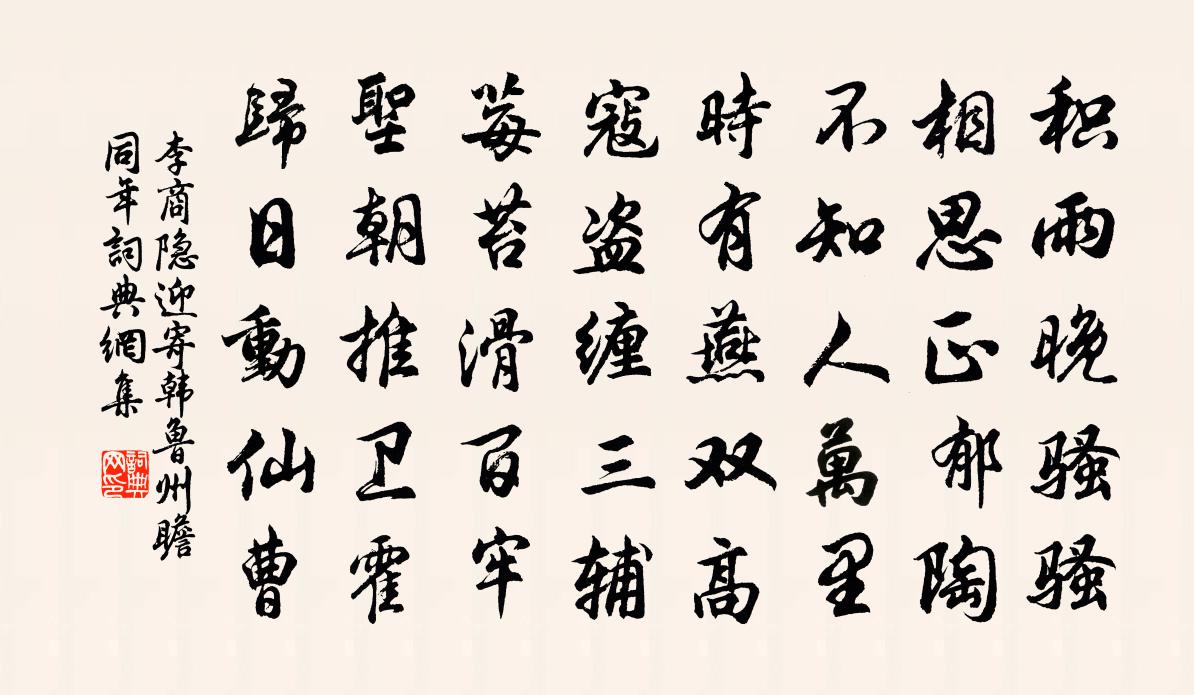 积雨晚骚骚
相思正郁陶
不知人萬里
時有燕双高
寇盗缠三辅
莓苔滑百牢
聖朝推卫霍
歸日動仙曹
李商隐迎寄韩鲁州瞻
同年詞典網集
詞典网印